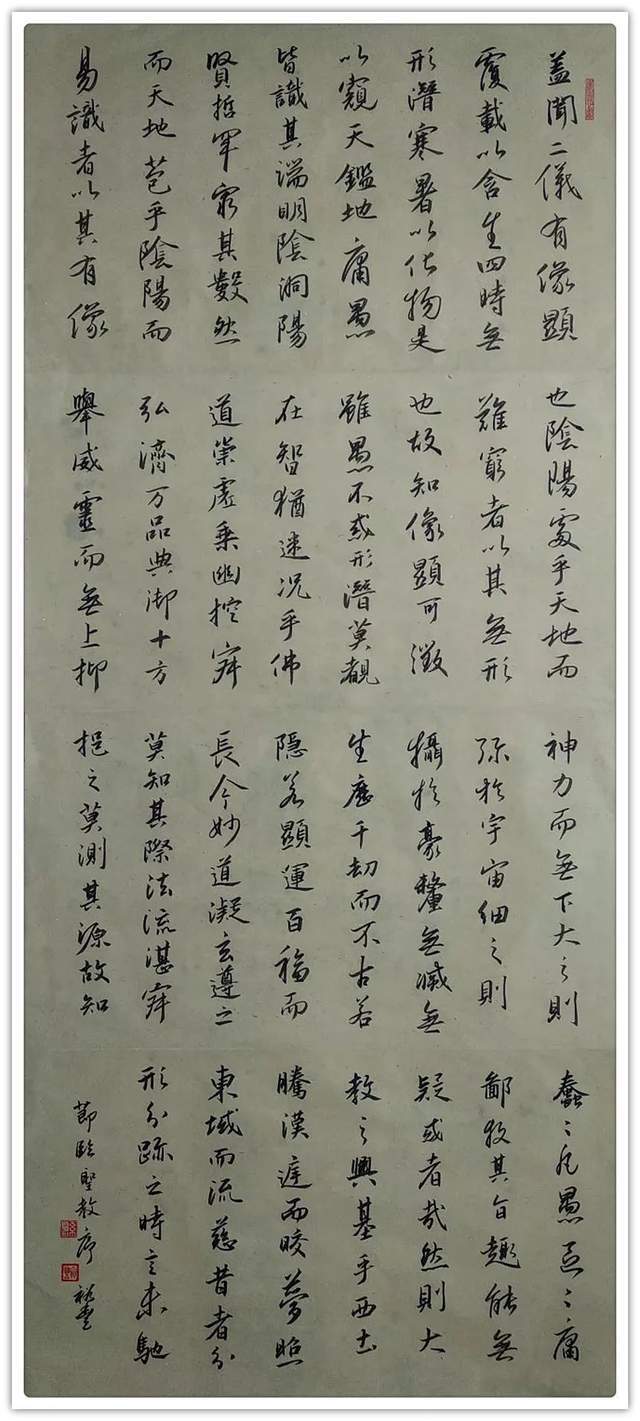 盖聞二儀有像顯
覆載以含生四時無
形潛寒暑以化物是
以窺天鑑地庸愚
皆識其端明陰洞陽
賢哲罕窮其數然
而天地苞乎陰陽而
易識者以其有像
也陰陽處乎天地而
難窮者以其無形
也故知像顯可徵
雖愚不惑形潛莫覩
在智猶迷况乎佛
道崇虛乘幽控寂
弘濟万品典御十方
舉威靈而無上抑
神力而無下大之則
弥於宇宙細之則
攝於豪釐無滅無
生歷千劫而不古若
隱若顯運百福而
長今妙道凝玄遵之
莫知其際法流湛寂
挹之莫測其源故知
蠢〻凡愚區〻庸
鄙投其旨趣能無
疑或者哉然則大
教之興基乎西土
騰漢庭而皎夢照
東域而流慈昔者分
形分跡之時言未馳
節臨聖教序